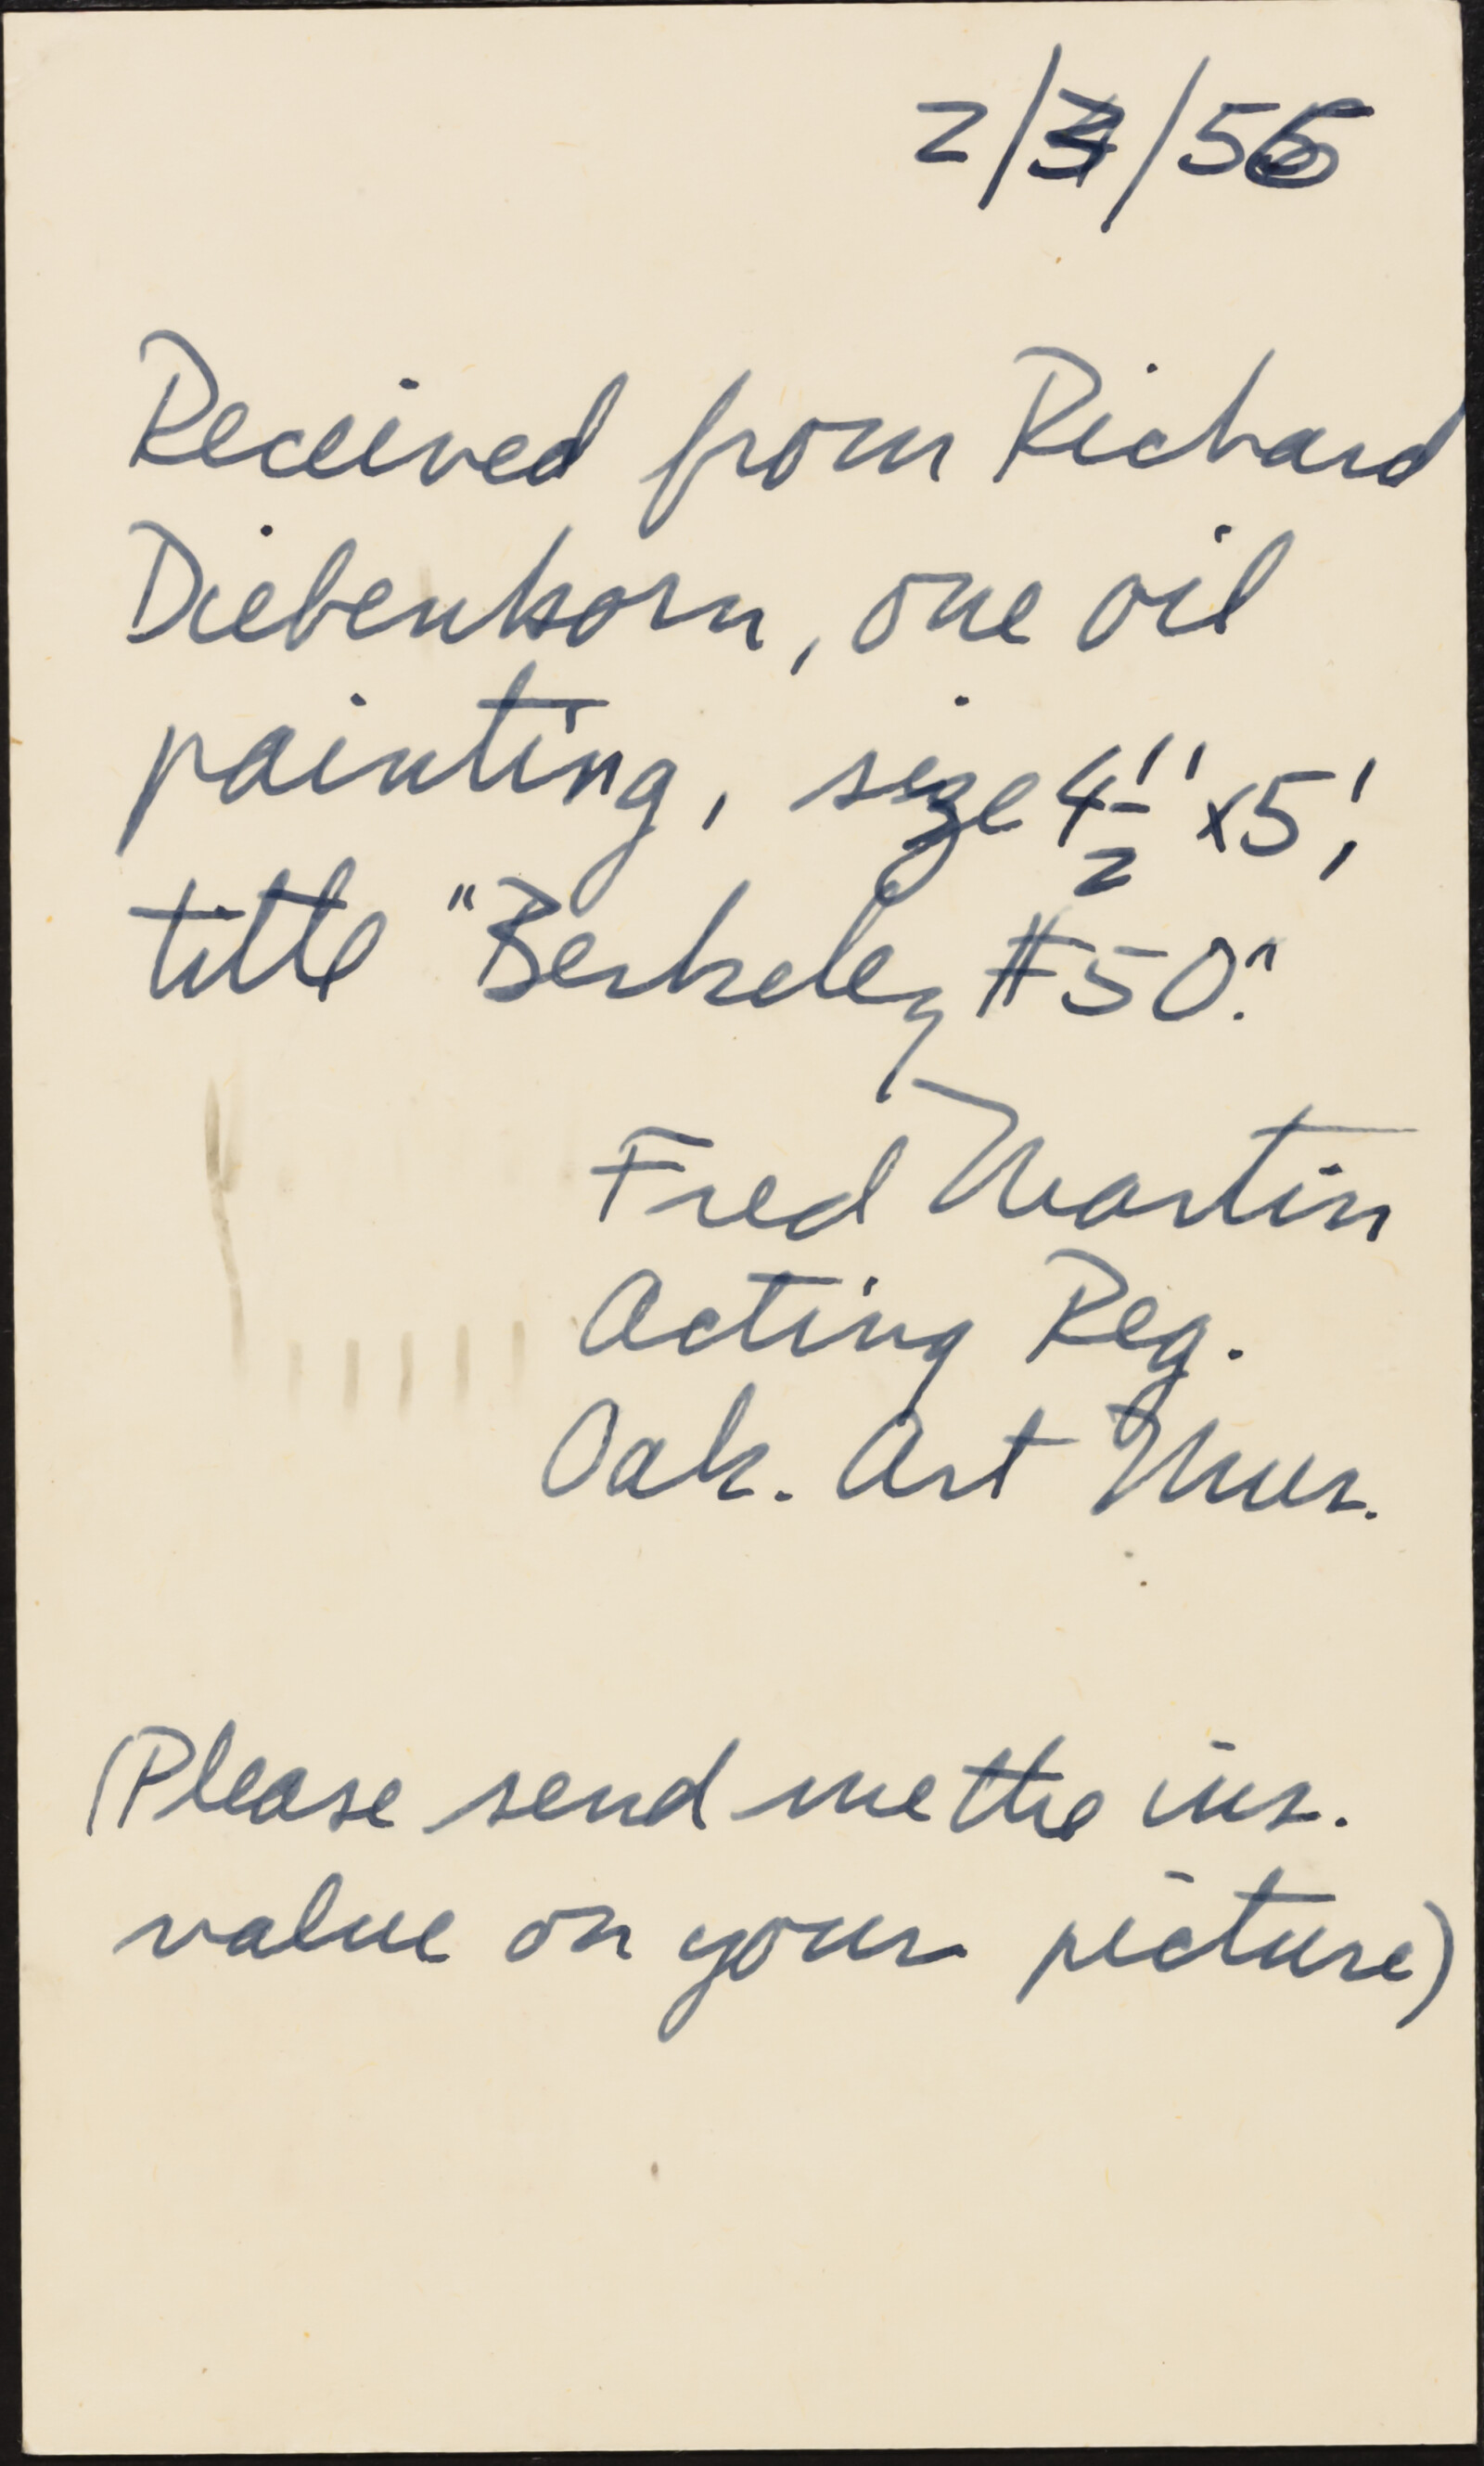 2/3/56
Received from Richard
Diebenkorn, one oil
painting, size 4 1/2'' x 5',
title "Berkeley #50."
Fred Martin
Acting Reg.
Oak. Art Mus.
(Please send me the ins.
value on your picture)